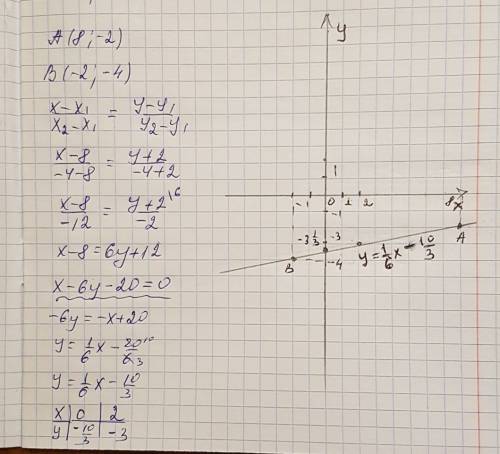 A(8; -2)
B(-2; -4)
x-x₁/x₂-x₁ = y-y₁/y₂-y₁
x-8/-4-8 = y+2/-4+2
x-8/-12 = y+2/-2 \6
x-8=6y+12
x-6y-20=0
-6y=-x+20
y=1/6x-20/6 10/3
y=1/6x-10/3
x | 0 | 2
y | -10/3 | -3
y
1
-1 0 1 2 8 x
-1
-3 1/3 -3
-4
B
A
y=1/6x-10/3